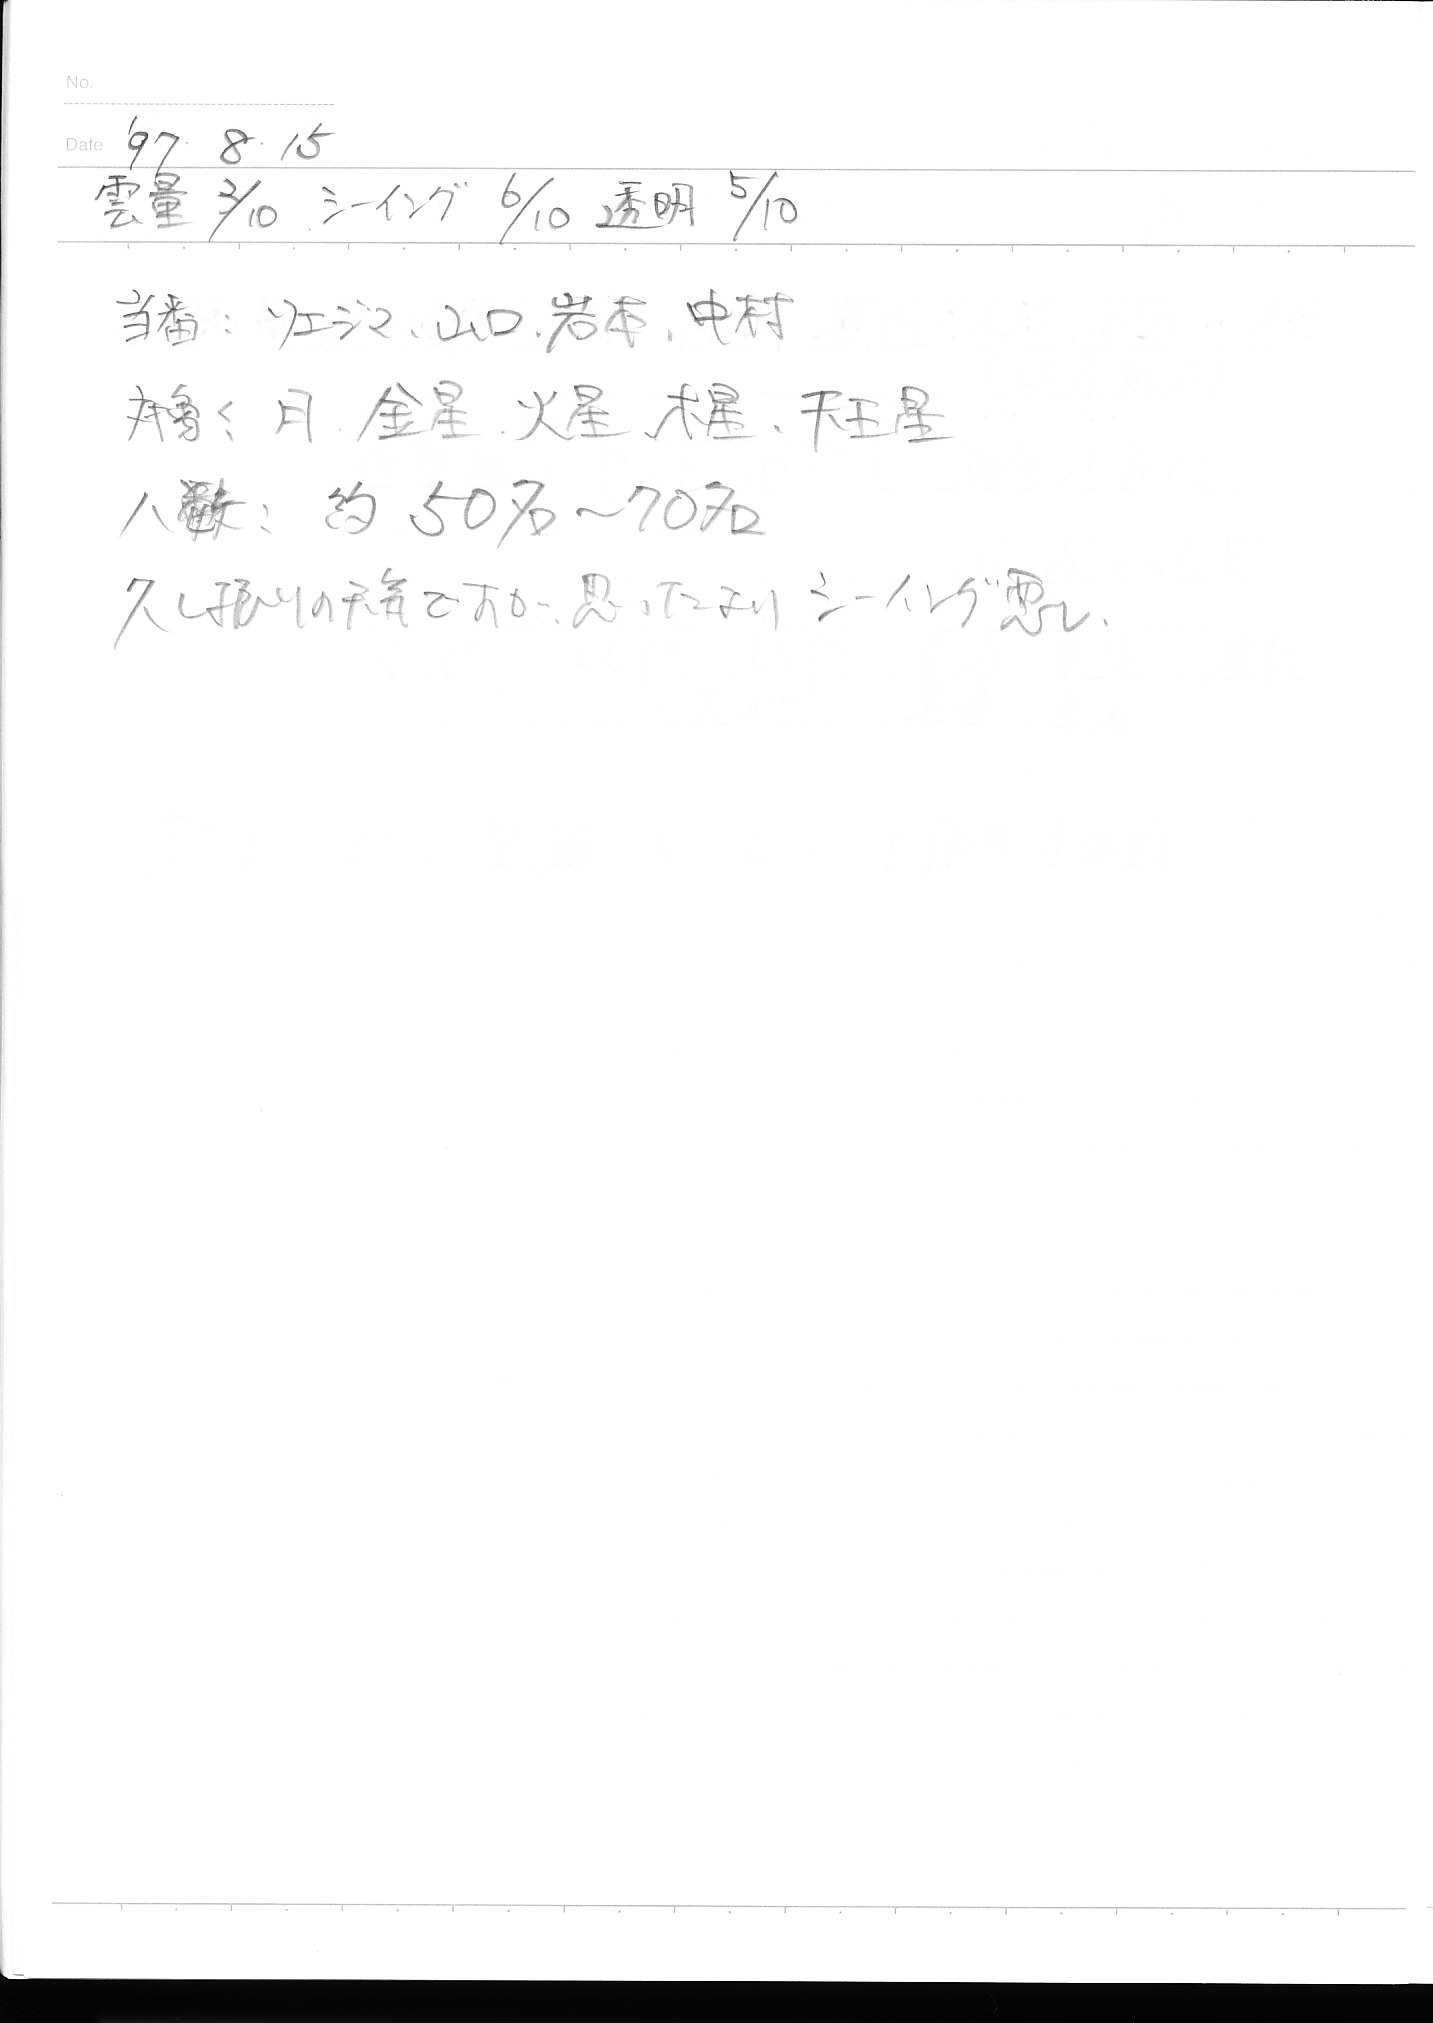 No.
Date '97. 8. 15
雲量 3/10 シーイング 6/10 透明 5/10
当番: ソエジマ、山口、岩本、中村
対象: 月、金星、火星、木星、天王星
人数: 約 50名〜70名
久し振りの天気ですが、思ったよりシーイング悪し.